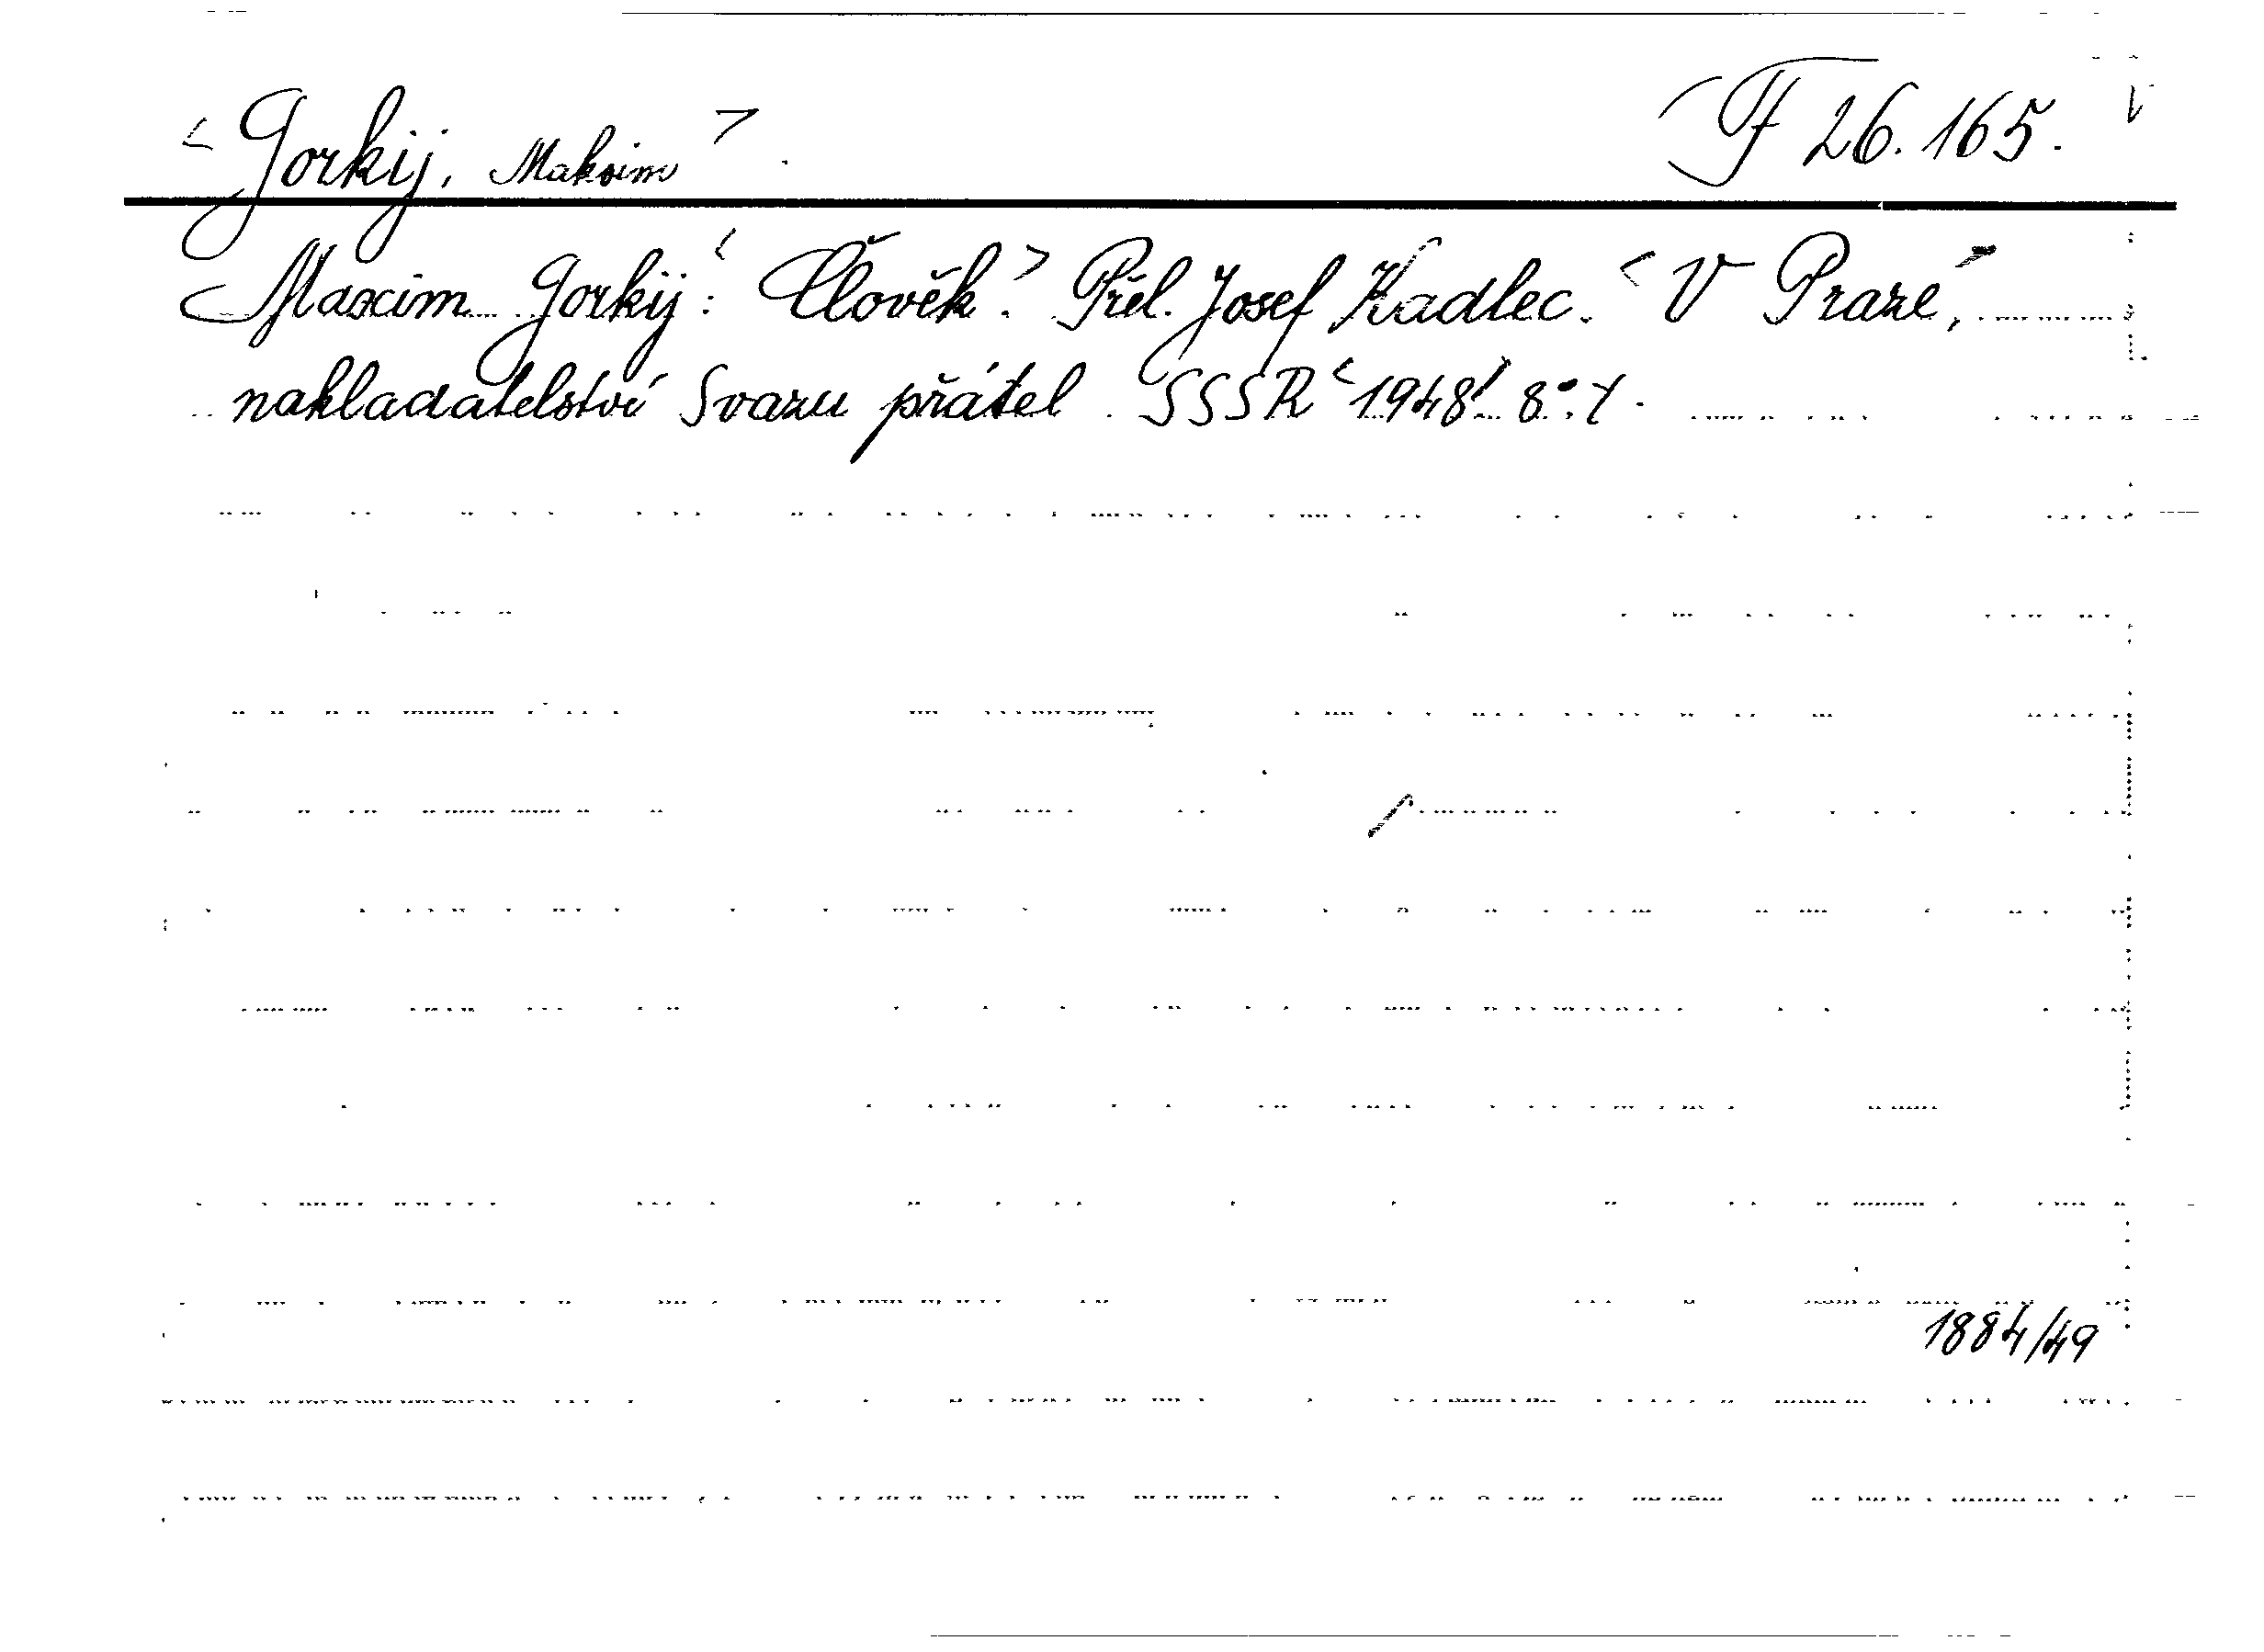 <Gorkij, Maksim>. F 26.165.
Maxim Gorkij: <Člověk.> Přel. Josef Kadlec. <V Praze,
nakladatelství Svazu přátel SSSR <1948. 8°.
1884/49